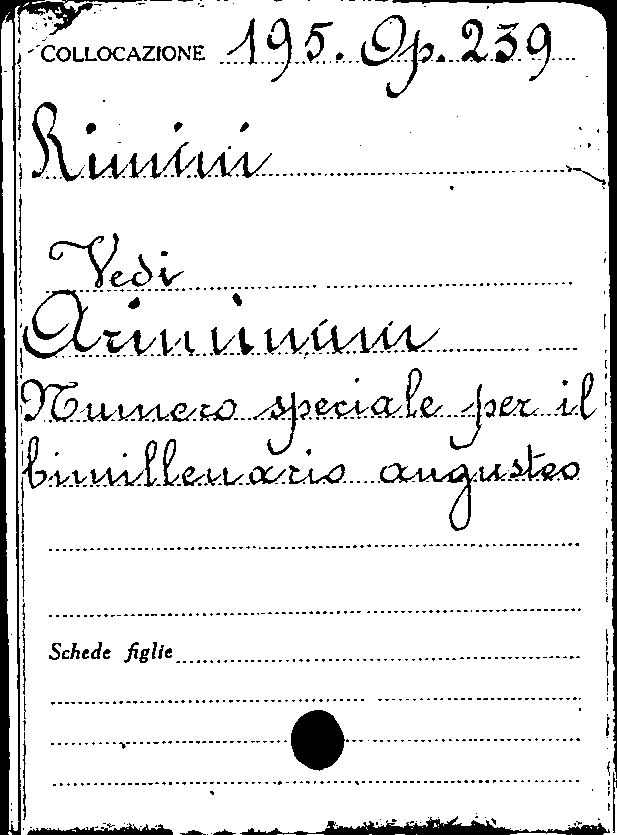 COLLOCAZIONE 195. Op. 239
Rimini
Vedi
Ariminum
Numero speciale per il
bimillenario augusteo
Schede figlie